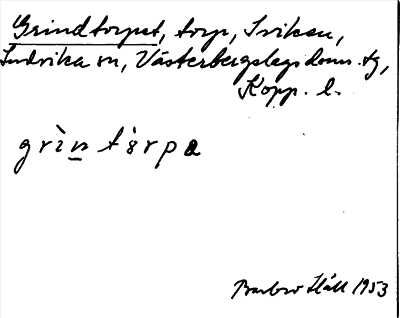 Grindtorpet, torp, Sviken,
Ludvika sn, Västerbergslags doms. tg,
Kopp. l.
grìn t̀ɵrpa
Barbro Häll 1953